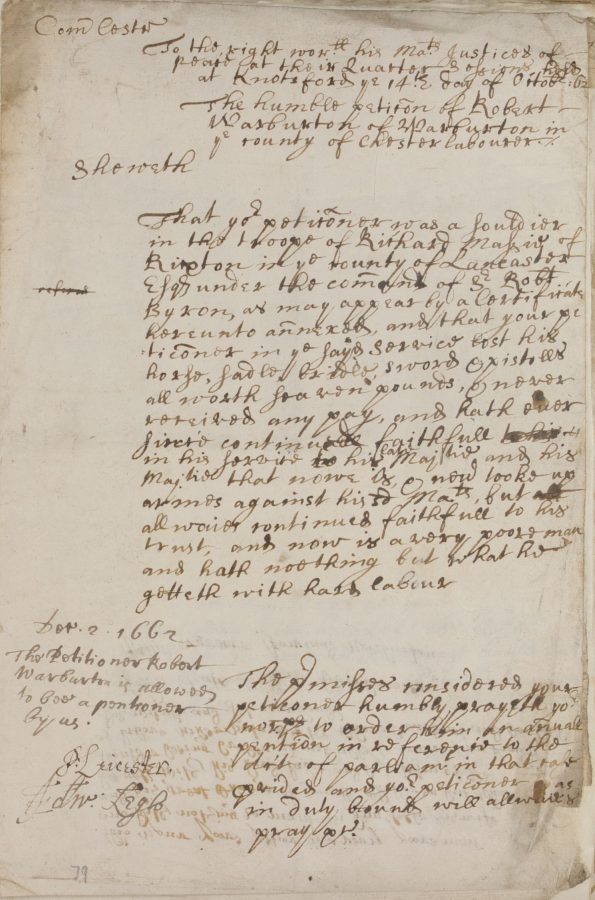 Com Cestr
To the right worll his Mats Justices of
Peace at their Quarter Sessions held
at Knotsford ye 14th day of Octob: 
The humble peticon of Robert
Warburton of Warburton in
ye county of Chester labourer
Sheweth
That yor peticoner was a souldier
in the troope of Richard Massie of
Rixton in ye county of Lancaster
Esqr under the command of Sr Robt
Byron, as may appear by a Certificate
hereunto annexed, and that your pe
ticoner in ye sayd service lost his
horse, sadle, bridle, sword & pistolls
all worth seaven pounds, & never
received any pay, and hath ever
since continued faithfull
in his service to his late Majtie and his
Majtie that nowe is, & nevr tooke up
armes against his sd Mats, but
all waies continued faithfull to his
trust, and now is a very poore man
and hath noething but what he
getteth with hard labour
referred
Dec. 2. 1662
The Petitioner Robert
Warburton is allowed
to bee a pentioner
by us.
P: Leicester
Edw: Legh
The pmisses considered your
peticoner humbly prayeth yor
worpps to order him an annuall
pention in reference to the
Act of parliamt in that case
pvided and yor peticoner as
in duty bound will allwaies
pray &c
79